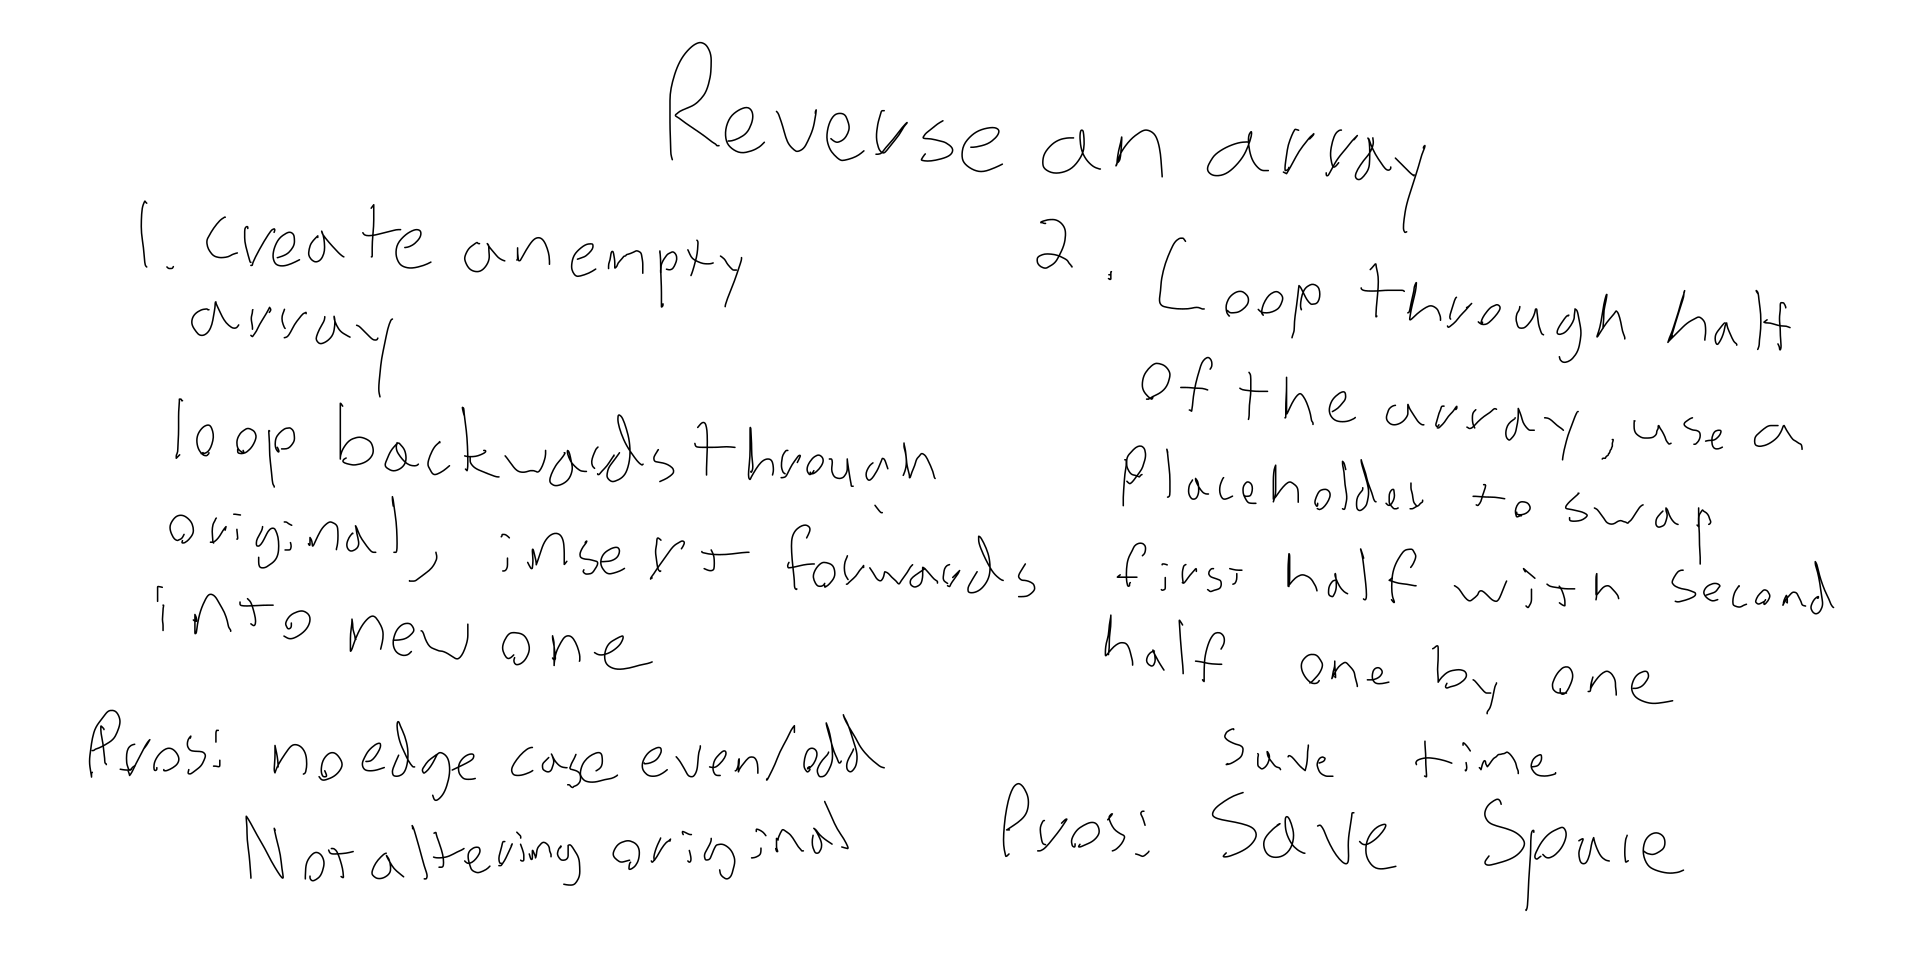 Reverse an array
1. create an empty
array
loop backwards through
original, insert forwards
into new one
Pros: no edge case even/odd
Not altering original
2. Loop through half
of the array, use a
Placeholder to swap
first half with second
half one by one
save time
Pros: Save Space